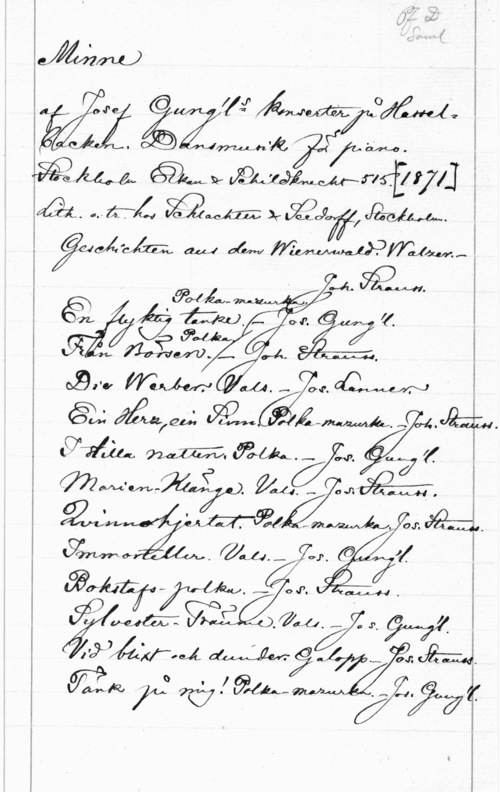 Pf. D
Saml
Minne
af Josef Gung'ls konserter på Hassel=
backen. Dansmusik för piano.
Stockholm Elkan & Schildknecht 515. [1871]
Lith. o. tr. hos Schlachter & Seedorff, Stockholm.
Geschichten aus dem Wienerwald. Walzer. –
Joh. Strauss.
Polka-mazurka
En flyktig tanke. / – Jos. Gung'l.
Polka
Från Börsen. / – Joh. Strauss.
Die Werber. Vals. – Jos. Lanner.
Ein Herz, ein Sinn. Polka-mazurka. – Joh. Strauss.
I stilla natten. Polka. – Jos. Gung'l.
Marien-Klänge. Vals. – Jos. Strauss.
Qvinnohjertat. Polka-mazurka. Jos. Strauss.
Immorteller. Vals. – Jos. Gung'l.
Bokstafs-polka. – Jos. Strauss.
Sylvester-Träume. Vals. – Jos. Gung'l.
Vid blixt och dunder. Galopp – Jos. Strauss.
Tänk på mig! Polka-mazurka. – Jos. Gung'l.